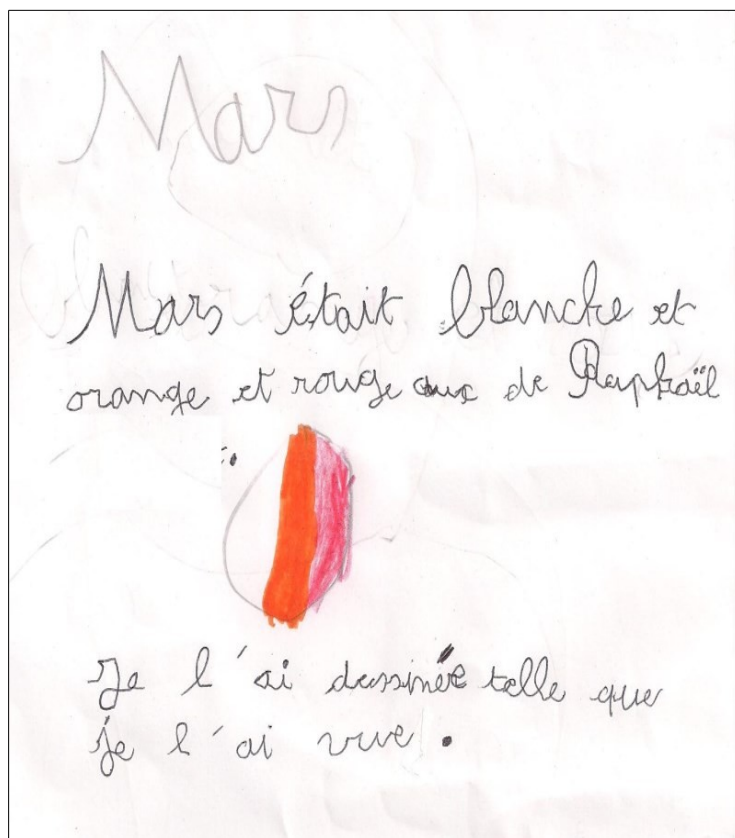 Mars
Mars était blanche et
orange et rouge de Raphaël
Je l'ai dessinée telle que
je l'ai vue.